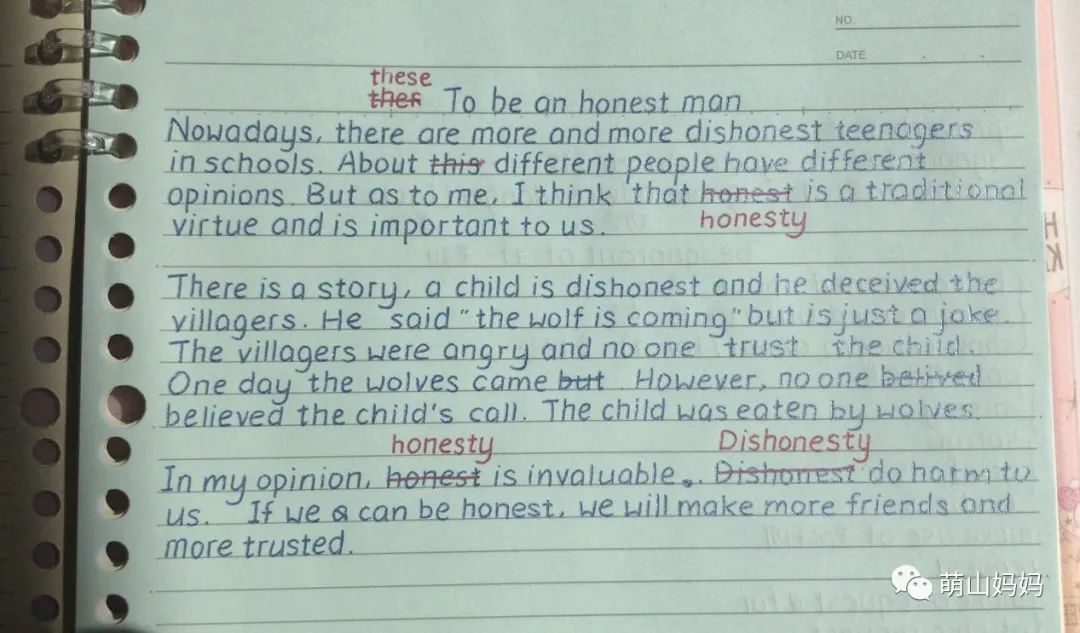 NO.
DATE
these
To be an honest man
Nowadays, there are more and more dishonest teenagers
in schools. About this different people have different
opinions. But as to me, I think that honest is a traditional
virtue and is important to us. honesty
There is a story, a child is dishonest and he deceived the
villagers. He said "the wolf is coming" but is just a joke.
The villagers were angry and no one trust the child.
One day the wolves came but. However, no one belived
believed the child's call. The child was eaten by wolves.
honesty Dishonesty
In my opinion, honest is invaluable. Dishonest do harm to
us. If we a can be honest, we will make more friends and
more trusted.
萌山妈妈